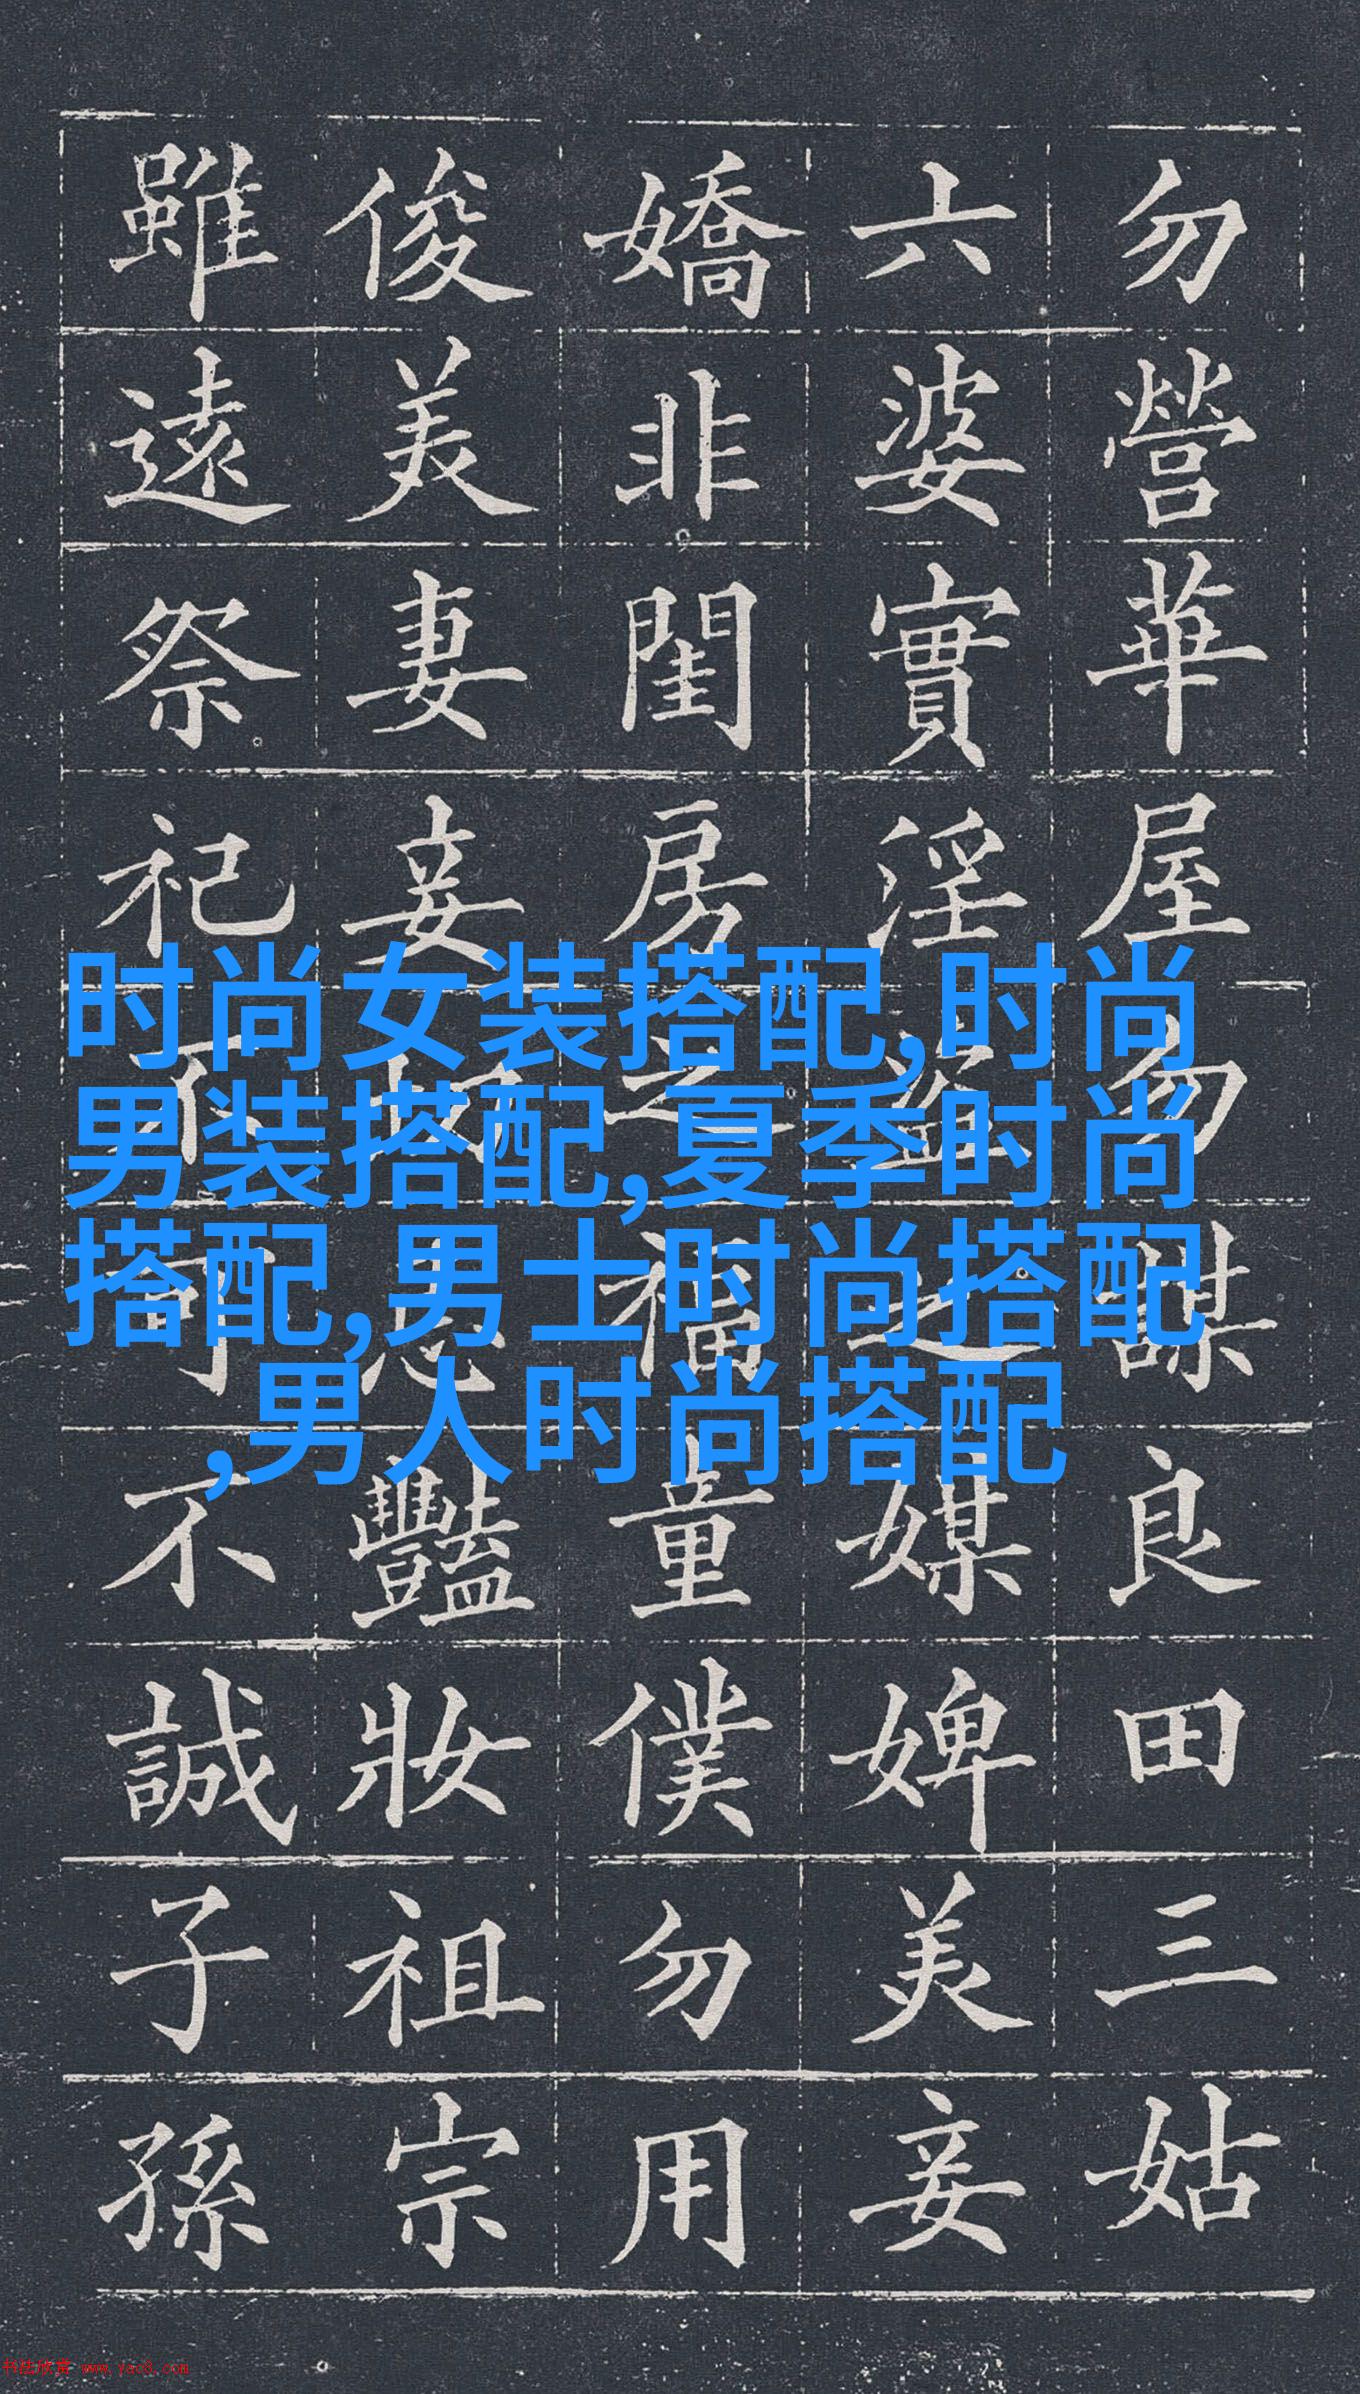 勿營華屋勿謀良田三姑
六婆實淫盜之媒婢美妾
嬌非閨房之福童僕勿用
俊美妻妾切忌豔妝祖宗
雖遠祭祀不可不誠子孫
时尚女装搭配,时尚
男装搭配,夏季时尚
搭配,男士时尚搭配
,男人时尚搭配
书法欣赏 www.yac8.com